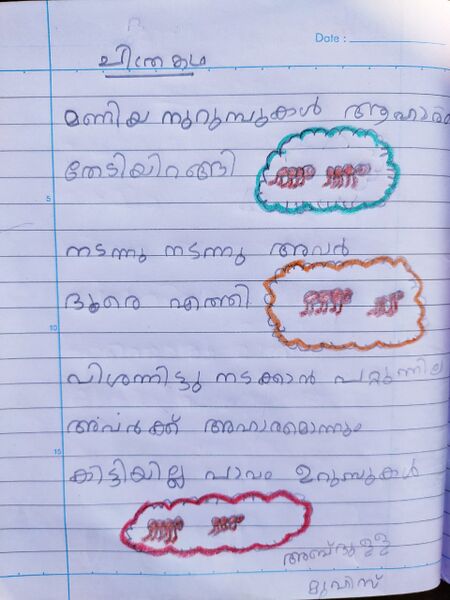 Date :
ചിത്ര കഥ
മണിയ നുറുമ്പുകൾ ആഹാരം
തേടിയിറങ്ങി
5
നടന്നു നടന്നു അവൻ
ദൂരെ എത്തി
10
വിശന്നിട്ടു നടക്കാൻ പറ്റുന്നില്ല
അവൻക്ക് അഹാരമൊന്നും
15
കിട്ടിയില്ല പാവം ഉറുമ്പുകൾ